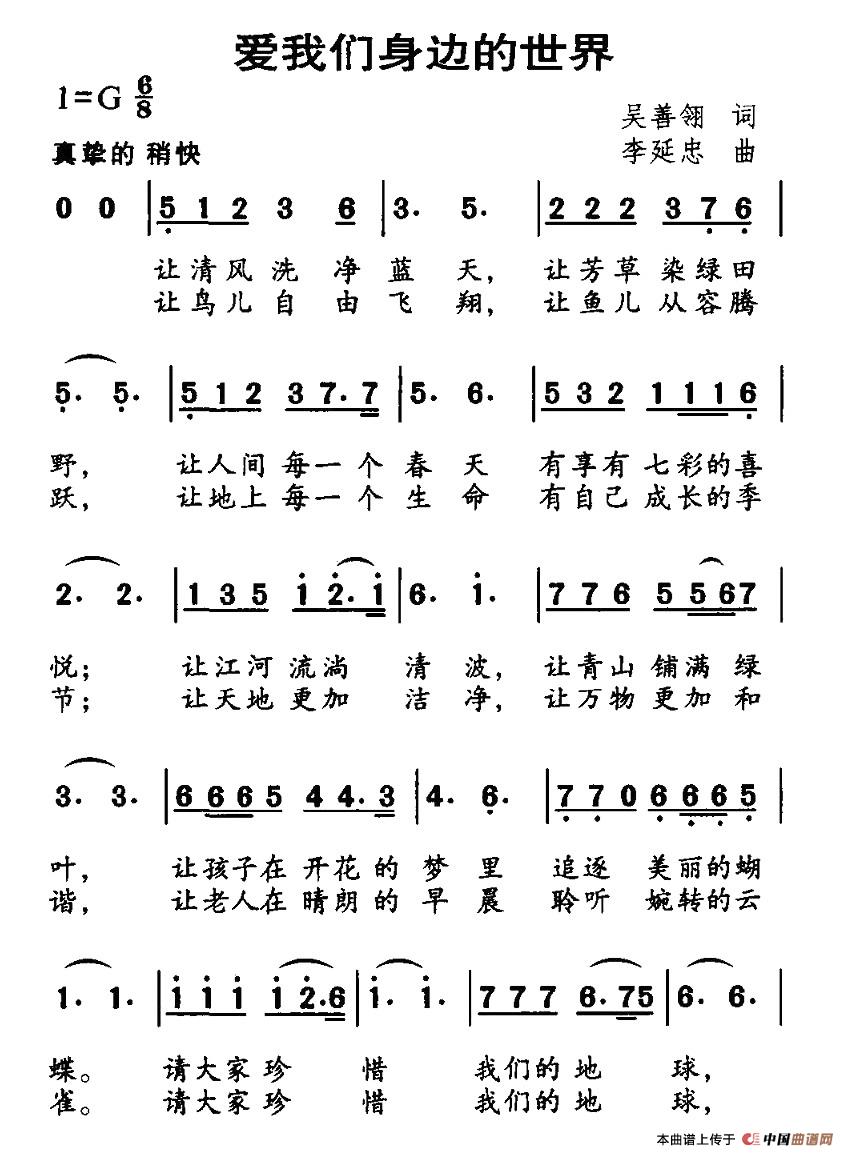 爱我们身边的世界
1=G 6/8
吴善翎 词
真挚的 稍快
李延忠 曲
0 0 | 5 1 2 3 6 | 3. 5. | 2 2 2 3 7 6 |
让清风洗净蓝天，让芳草染绿田
让鸟儿自由飞翔，让鱼儿从容腾
5. 5. | 5 1 2 3 7. 7 | 5. 6. | 5 3 2 1 1 1 6 |
野，让人间每一个春天有享有七彩的喜
跃，让地上每一个生命有自己成长的季
2. 2. | 1 3 5 1 2. 1 | 6. 1. | 7 7 6 5 5 6 7 |
悦；让江河流淌清波，让青山铺满绿
节；让天地更加洁净，让万物更加和
3. 3. | 6 6 6 5 4 4. 3 | 4. 6. | 7 7 0 6 6 6 5 |
叶，让孩子在开花的梦里追逐美丽的蝴
谐，让老人在晴朗的早晨聆听婉转的云
1. 1. | 1 1 1 1 2. 6 | 1. 1. | 7 7 7 6. 7 5 | 6. 6. |
蝶。请大家珍惜我们的地球，
雀。请大家珍惜我们的地球，
本曲谱上传于 中国曲谱网